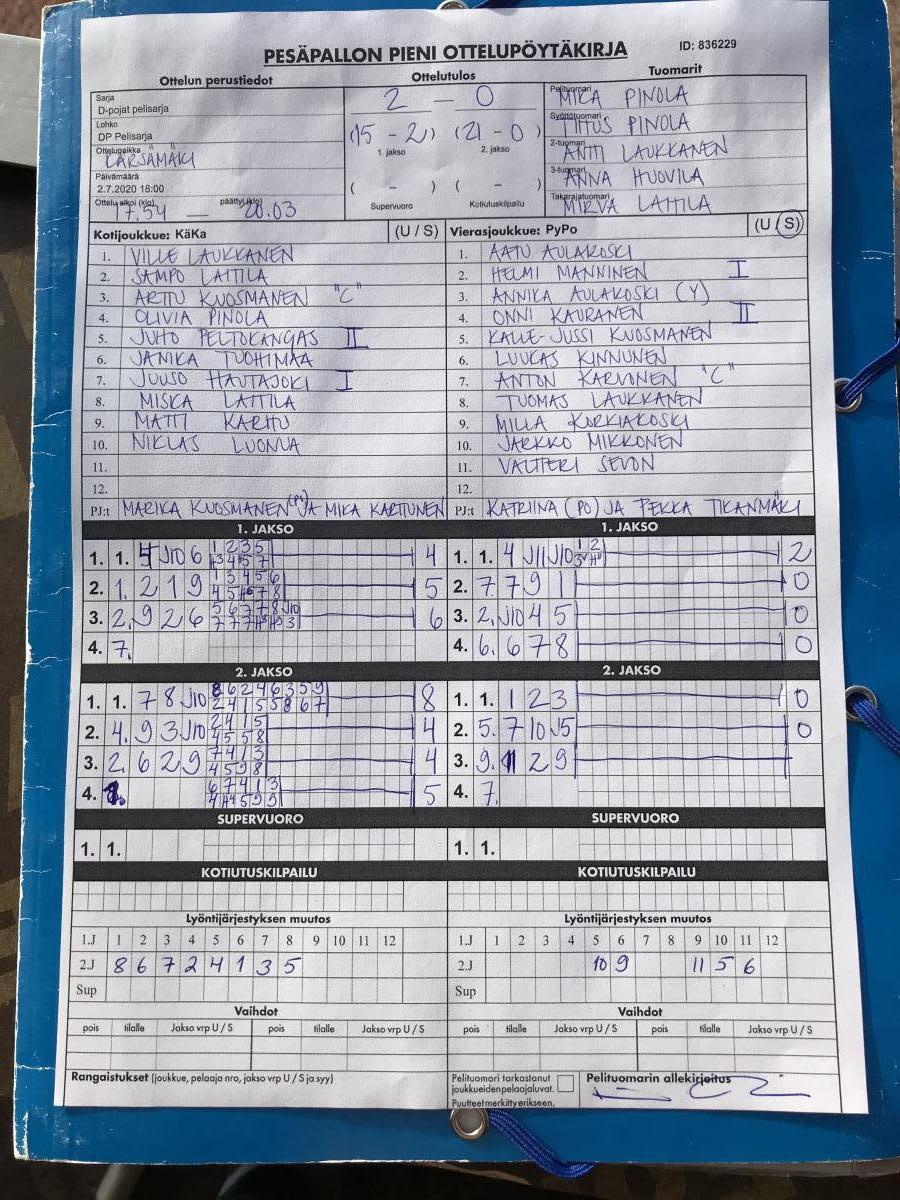 PESÄPALLON PIENI OTTELUPÖYTÄKIRJA
ID: 836229
Ottelun perustiedot
Sarja
D-pojat pelisarja
Lohko
DP Pelisarja
Ottelupaikka
KÄRSÄMÄKI
Päivämäärä
2.7.2020 18:00
Ottelu alkoi (klo) 17.54 — päättyi (klo) 20.03
Ottelutulos
2 – 0
(15 – 2) (21 – 0)
1. jakso 2. jakso
( – ) ( – )
Supervuoro Kotiutuskilpailu
Tuomarit
Pelituomari MIKA PINOLA
Syöttötuomari TIITUS PINOLA
2-tuomari ANTTI LAUKKANEN
3-tuomari ANNA HUOVILA
Takarajatuomari MIRVA LATTILA
Kotijoukkue: KäKa (U / S)
1. VILLE LAUKKANEN
2. SAMPO LATTILA
3. ARTTU KUOSMANEN "C"
4. OLIVIA PINOLA
5. JUHO PELTOKANGAS II
6. JANIKA TUOHIMAA
7. JUUSO HAUTAJOKI I
8. MISKA LATTILA
9. MATTI KARHU
10. NIKLAS LUONUA
11.
12.
PJ:t MARIKA KUOSMANEN (PJ) JA MIKA KARTTUNEN
Vierasjoukkue: PyPo (U / S)
1. AATU AULAKOSKI
2. HELMI MANNINEN I
3. ANNIKA AULAKOSKI (Y)
4. ONNI KAURANEN II
5. KALLE-JUSSI KUOSMANEN
6. LUUKAS KINNUNEN
7. ANTON KARVONEN "C"
8. TUOMAS LAUKKANEN
9. MILLA KORKIAKOSKI
10. JARKKO MIKKONEN
11. VALTTERI SEVON
12.
PJ:t KATRIINA (PO) JA PEKKA TIKANMÄKI
1. JAKSO
1. 1. 4 J10 6 4
2. 1. 2 1 9 5
3. 2. 9 2 6 6
4. 7.
1. JAKSO
1. 1. 4 J11 J10 2
2. 7. 7 9 1 0
3. 2. J10 4 5 0
4. 6. 6 7 8 0
2. JAKSO
1. 1. 7 8 J10 8
2. 4. 9 3 J10 4
3. 2. 6 2 9 4
4. 5
2. JAKSO
1. 1. 1 2 3 0
2. 5. 7 10 J5 0
3. 9. 2 9
4. 7.
SUPERVUORO
1. 1.
SUPERVUORO
1. 1.
KOTIUTUSKILPAILU
KOTIUTUSKILPAILU
Lyöntijärjestyksen muutos
1.J 1 2 3 4 5 6 7 8 9 10 11 12
2.J 8 6 7 2 4 1 3 5
Sup
Lyöntijärjestyksen muutos
1.J 1 2 3 4 5 6 7 8 9 10 11 12
2.J 10 9 11 5 6
Sup
Vaihdot
pois tilalle Jakso vrp U / S pois tilalle Jakso vrp U / S
Vaihdot
pois tilalle Jakso vrp U / S pois tilalle Jakso vrp U / S
Rangaistukset (joukkue, pelaaja nro, jakso vrp U / S ja syy)
Pelituomari tarkastanut
joukkueiden pelaajaluvat.
Puutteet merkitty erikseen.
Pelituomarin allekirjoitus